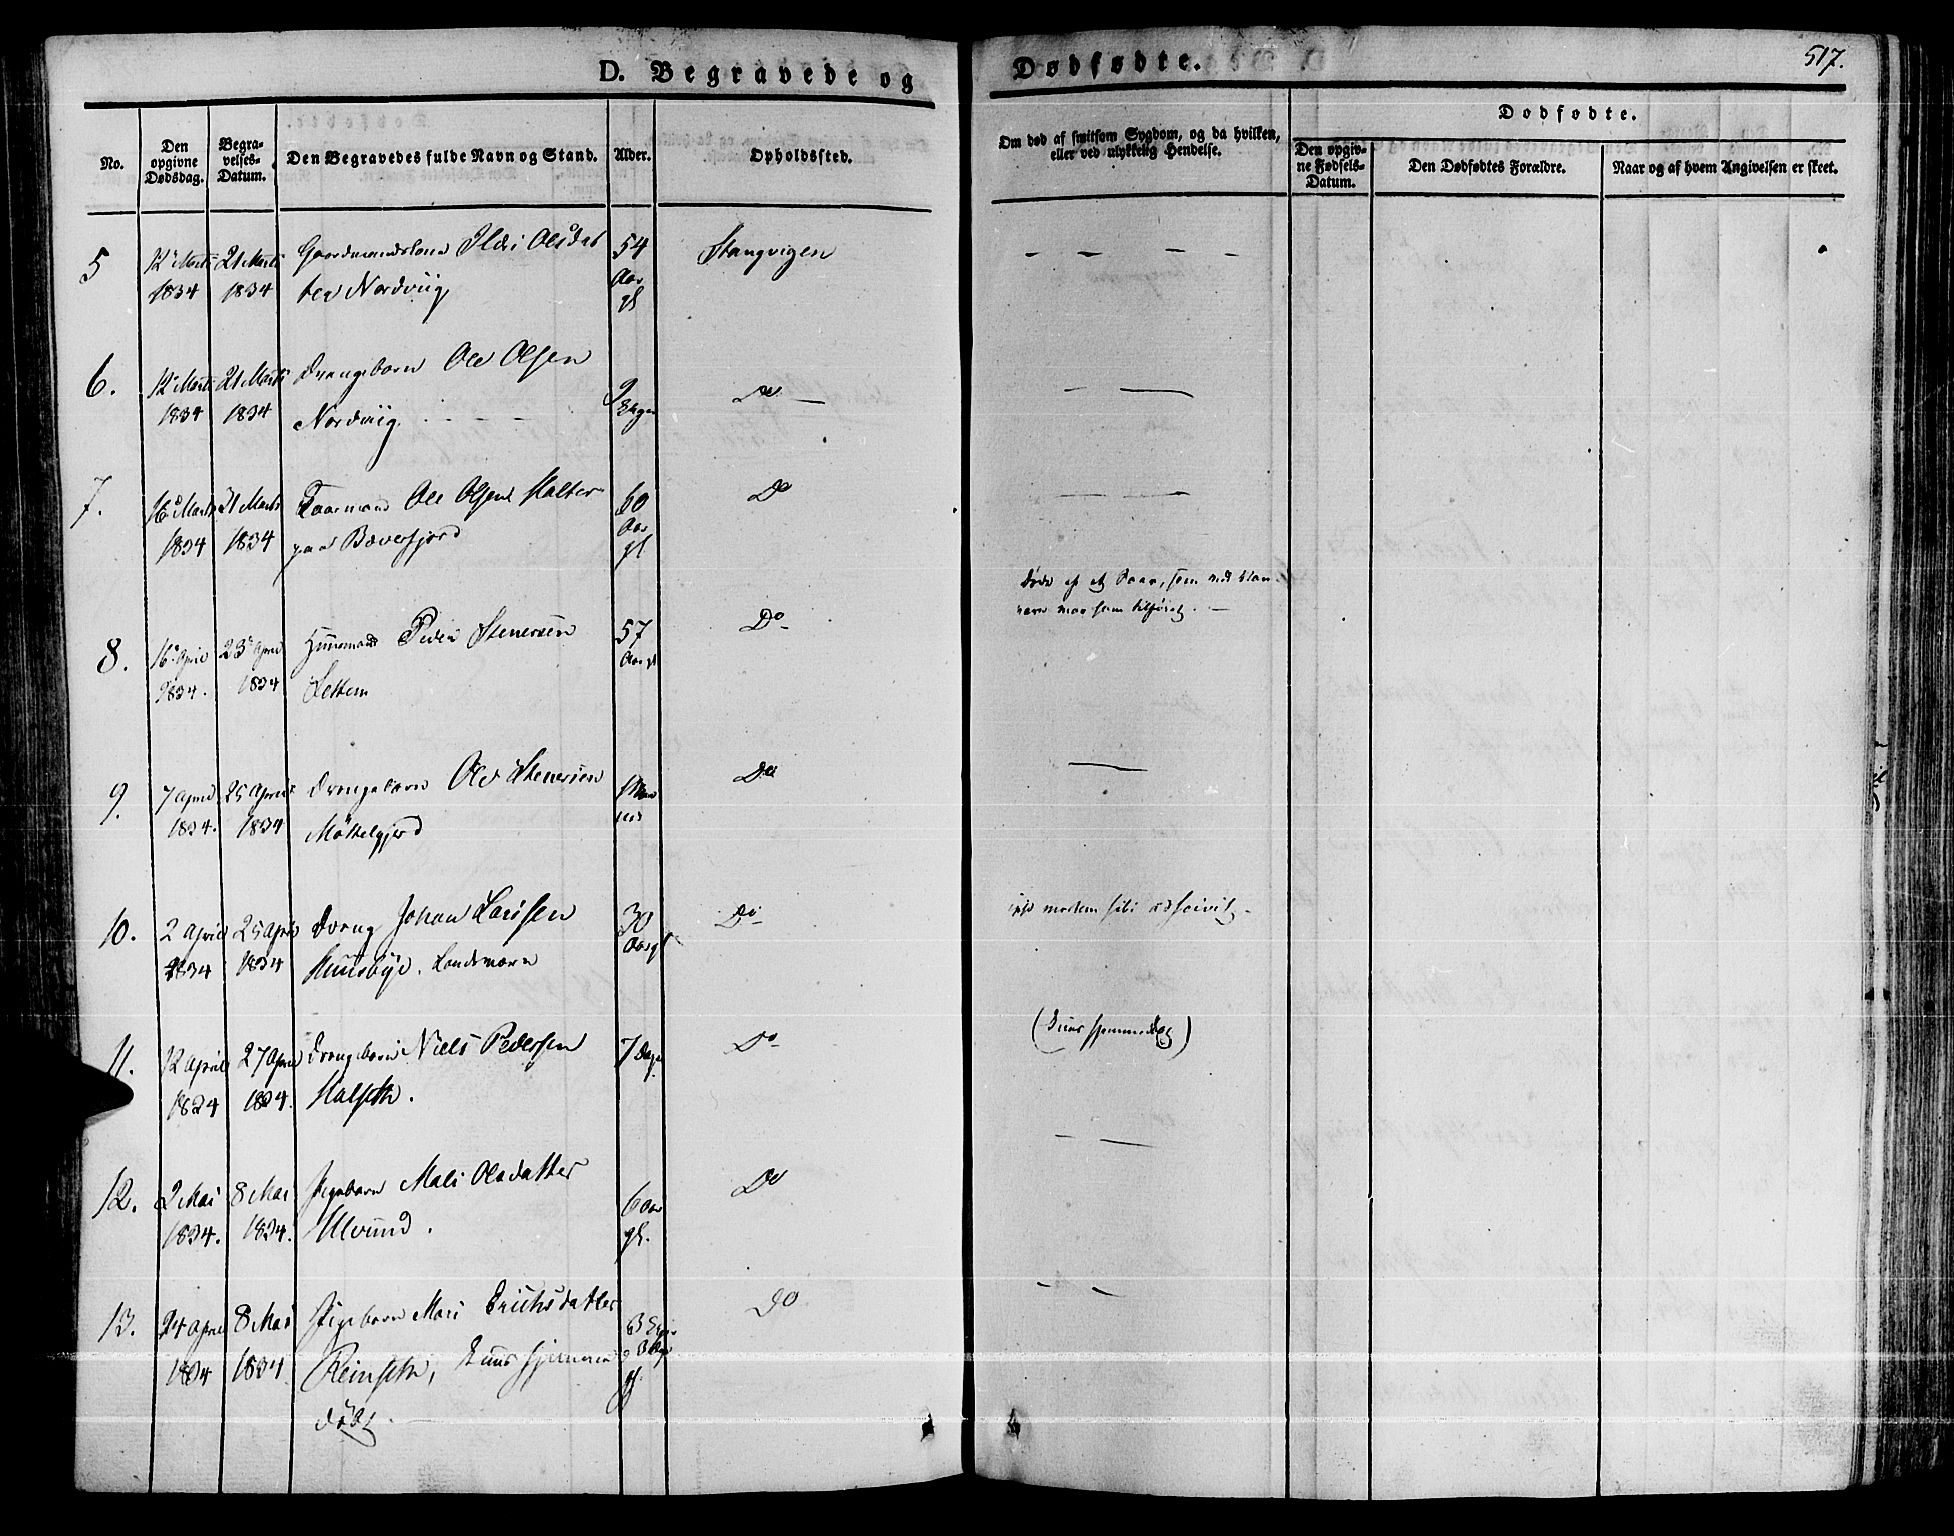 D. Begravede og
Dødfødte.
517.
No.
Den opgivne Dødsdag.
Begravelses-Datum.
Den Begravedes fulde Navn og Stand.
Alder.
Opholdssted.
Om død af smitsom Sygdom, og da hvilken, eller ved ulykkelig Hendelse.
Dødfødte.
Den opgivne Fødsels-Datum.
Den Dødfødtes Forældre.
Naar og af hvem Angivelsen er skeet.
5 12 Marts 21 Marts Gaardmandskone Ildri Olsdat 54 Stangvigen
1834 1834 ter Nordviig Aar
gl
6. 12 Marts 21 Marts Drengebarn Ole Olsen 9 Do
1834 1834 Nordviig
7. 16 Marts 21 Marts Ole Olsen Halter 60 Do
1834 1834 paa Bæverfjord Aar
gl
8. 16 April 23 April Huusmand Peder Stenersen 57 Do
1834. 1834 Settem Aar gl
Døde af et Saar, som
9. 7 April 25 April Drengebarn Ole Stenersen Do
1834. 1834 Møkkelgjerd
10. 2 April 25 April Dreng Johan Larssen 30 Do ipse mortem sibi adscivit.
1834 1834 Huusbye. Landeværn Aar gl
11. 12 April 27 April Drengebarn Niels Pedersen 7 Dage Do (Huus hjemmedøbt)
1834 1834. Halseth.
12. 2 Mai 8 Mai Pigebarn Mali Olsdatter 6 Aar Do
1834. 1834. Ulvund. gl.
13. 24 April 8 Mai Pigebarn Mari Erichsdatter 3 Do
1834 1834 Reinseth, Huus hjemme
døbt.